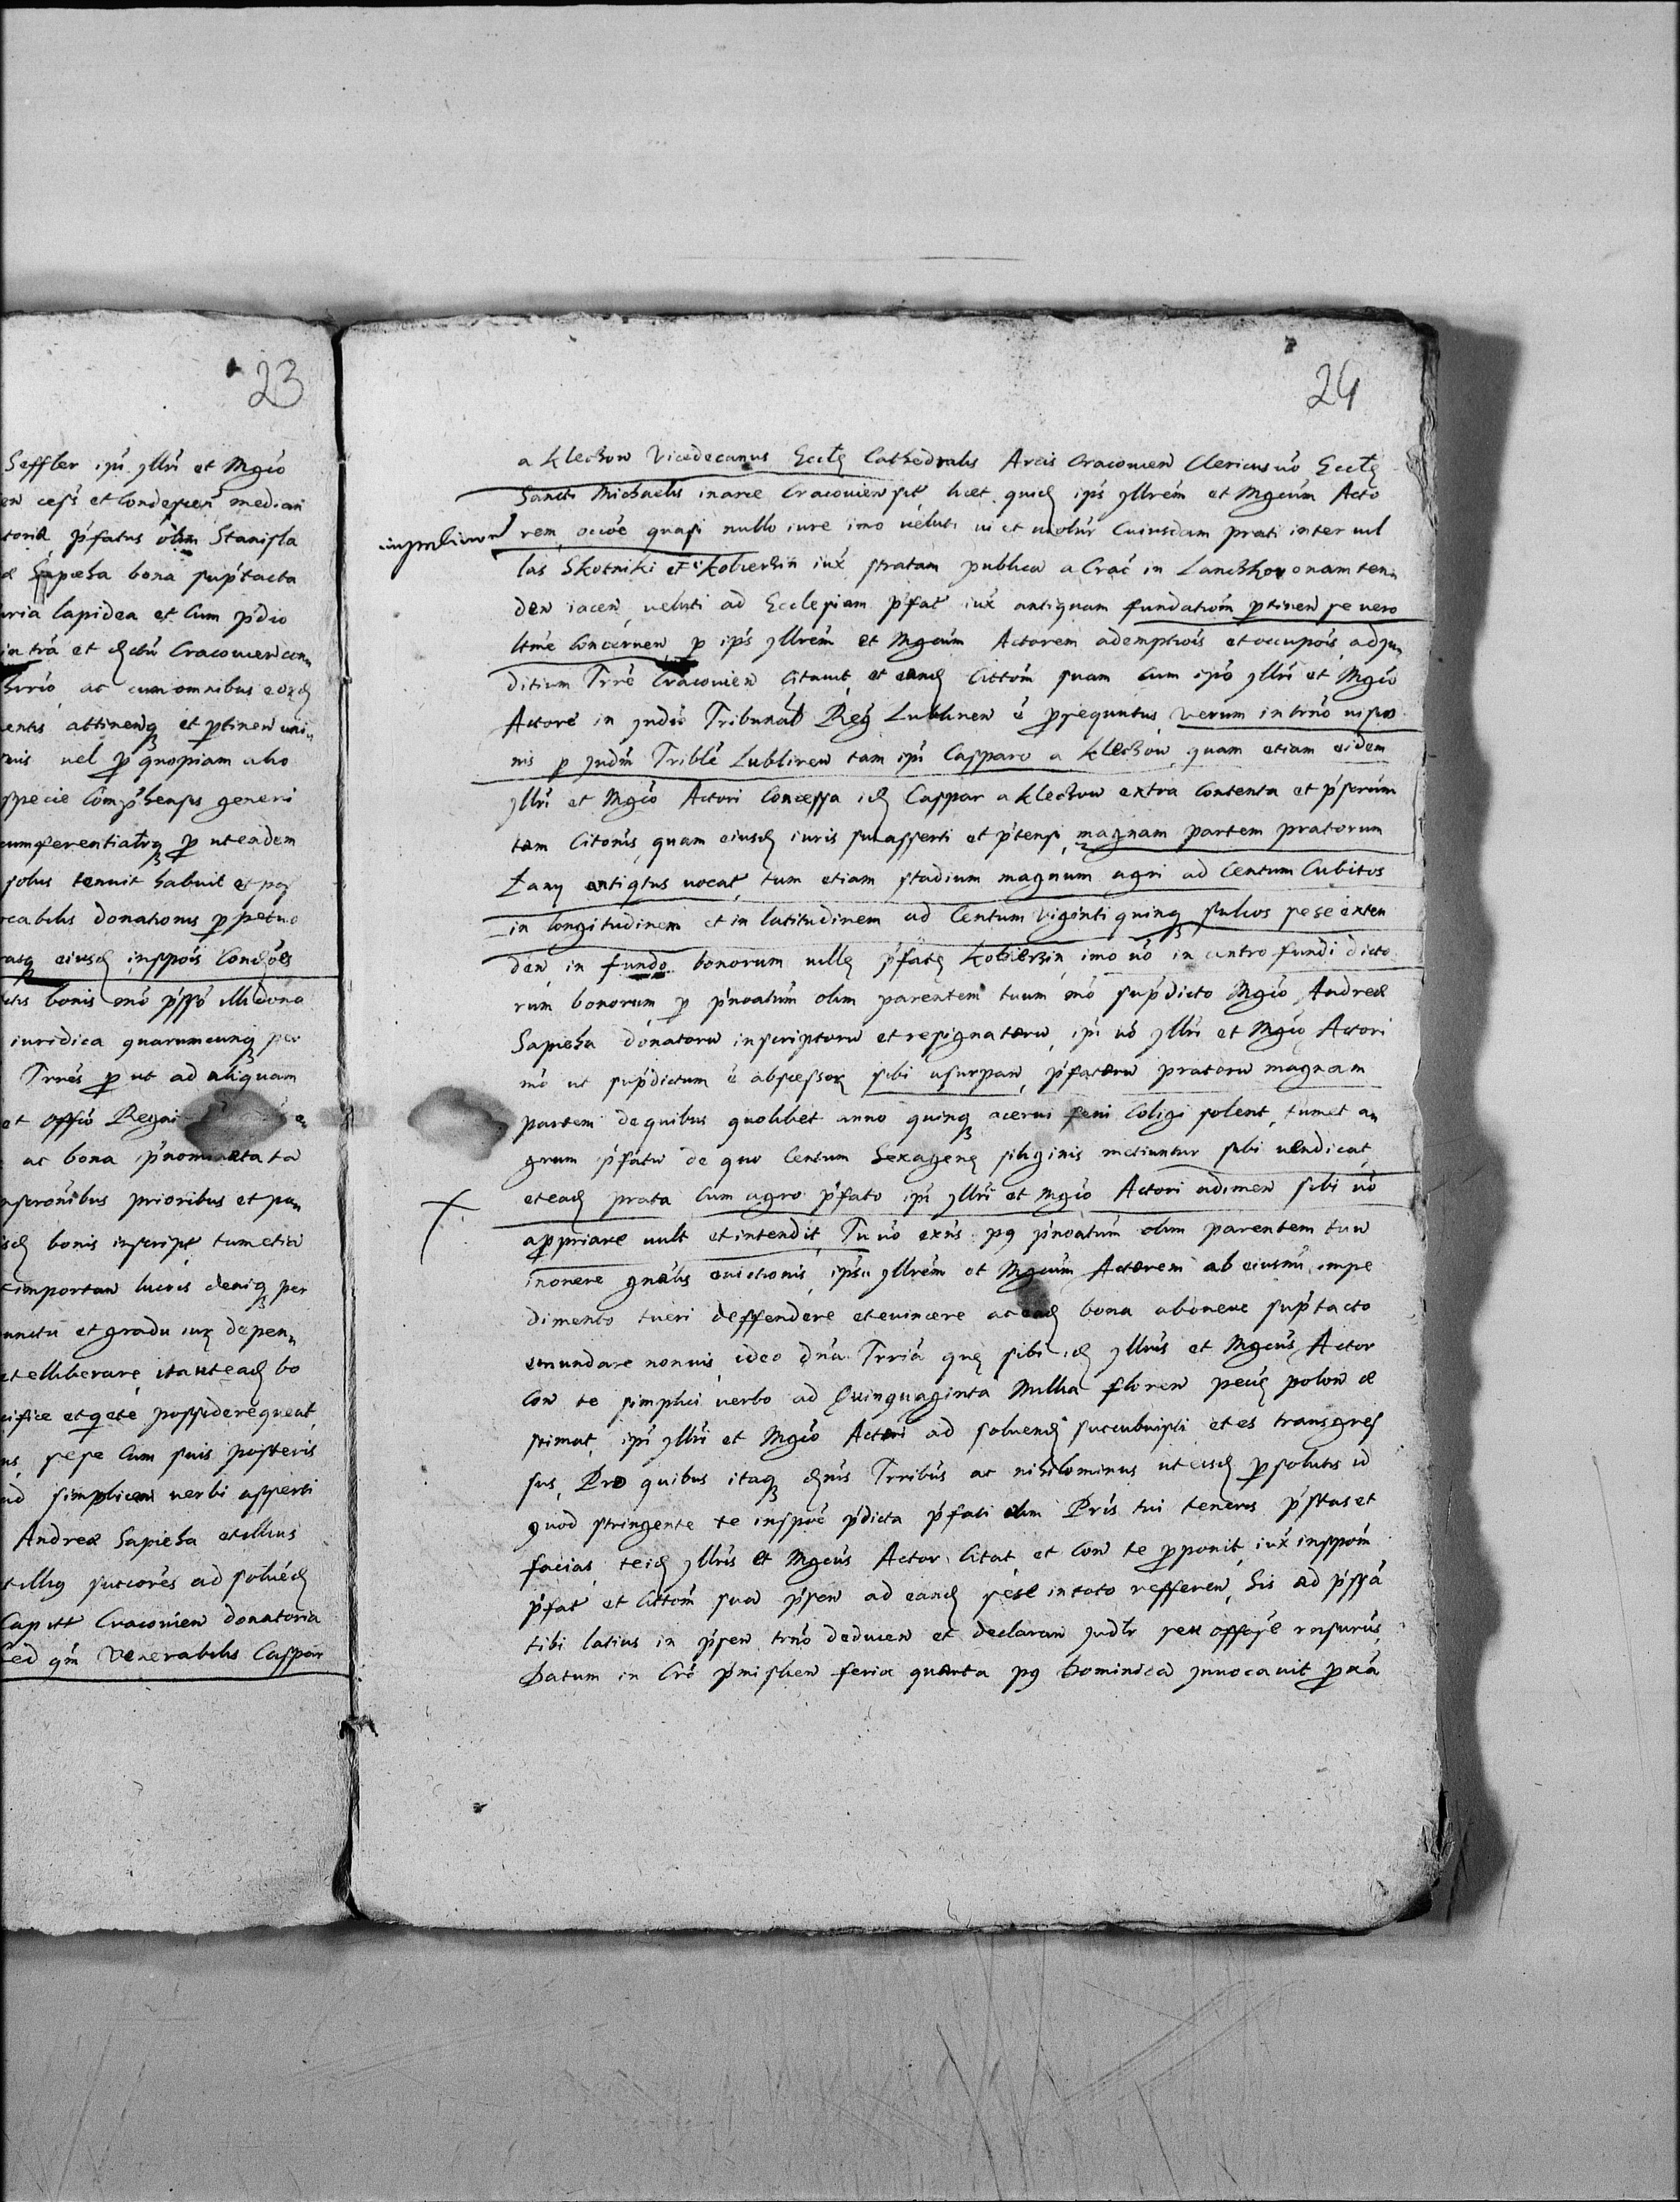 23
Seffler ipi yllri et Mgco
en cess et Condescen median
toria pfatus olim Stanisla
Sapieha bona suptacta
uria lapidea et Cum pdio
intra et Cracouien con
ac cum omnibus eorq
entis attinenq et ptinen uni
nis uel p quopiam alio
specie Comphensis generi
cumferentiatq p ut eadem
solus tenuit habuit et pos
ocabilis donationis p petuo
asq eiusd insppois Condoes
bonis mo pisso illi dona
iuridica quarumcunq per
Trres p ut ad aliquam
et offio Regni
ac bona pnominata ta
nseronibus prioribus et pu
isd bonis inscript tumetia
importan lucris deniq per
unctu et gradu iur depen
et elliberare, ita ut ead bo
cifice et qete possidere queat,
us, sese Cum suis posteris
ad simplicem uerbi asserti
Andreæ Sapieha et illius
et illius succores ad soluēd
Capitt Cracouien donatoria
Sed qm Venerabilis Caspar
24
a Klechow Vicedecanus Eccle Cathedralis Arcis Cracouien Clericus uo Eccle
Sancti Michaelis in arce Cracouien sit licet quid ips yllrem et Mgcum Acto
rem, occoe quasi nullo iure imo ueluti ui et uiolur Cuiusdam prati inter uil
las Skotniki et Kobierzin iux stratam publica a Crac in Lanczkoronam ten
den iacen ueluti ad Ecclesiam pfat iux antiquam fundatiom ptinen se uero
ltme Concernen p ips yllrem et Mgcum Actorem ademptiois et occupois adju
ditium Trre Cracouien Citauit, et eand Cittom suam Cum ipo yllri et Mgco
Actore in Judio Tribunal Reg Lublinen e psequutus, Verum in trno uisio
nis p Judm Trible Lublinen tam ipi Casparo a Klechow, quam etiam eidem
yllri et Mgco Actori Concessa id Caspar a Klechow extra Contenta et pserim
tam Citonis, quam eiusd iuris sui asserti et ptensi, magnam partem pratorum
Łany antiqtus uocat, tum etiam stadium magnum agri ad Centum Cubitos
in longitudinem et in latitudinem ad Centum Viginti quinq sulcos sese exten
den in fundo bonorum uille pfate Kobierzin imo uo in centro fundi dicto
rum bonorum p pnoatum olim parentem tuum mo supdicto Mgco Andreæ
Sapieha donatoru inscriptoru et resignatoru, ipi uo yllri et Mgco Actori
mo ut supdictum e abscessor sibi usurpan, pfatoru pratoru magnam
partem de quibus quolibet anno quinq acerui feni Coligi solent, tumet a
grum pfatu de quo Centum Sexagene siliginis metiuntur sibi uendicat,
et ead prata Cum agro pfato ipi yllri et Mgco Actori adimen sibi uo
appriare uult et intendit, Tu uo exns pq pnoatum olim parentem tuu
in onere gnalis euictionis ipsu yllrem et Mgcum Actorem ab eiusmi impe
dimento tueri deffendere et euincere ac ead bona ab onere suptacto
emundare non uis, ideo dna Trria que sibi id yllris et Mgcus Actor
Con te simplici uerbo ad Quinquaginta Millia floren pecq polon æ
stimat, ipi yllri et Mgco Actori ad soluend succubuisti et es transgres
sus, Pro quibus itaq dnis Trribus ac nihilominus ut eisd psolutis id
quod stringente te inspoe pdicta pfati olim Pris tui teneris pstas et
facias, te id yllris et Mgcus Actor Citat, et Con te pponit, iux insppom
pfat et Cittom sua psen ad eand sese in toto refferen, Sis ad pssa
tibi latius in psen trno deducen et declaran Judlr seu offose rnsurus,
Datum in Cro pmislien feria quarta pq Dominica Jnuocauit pxa